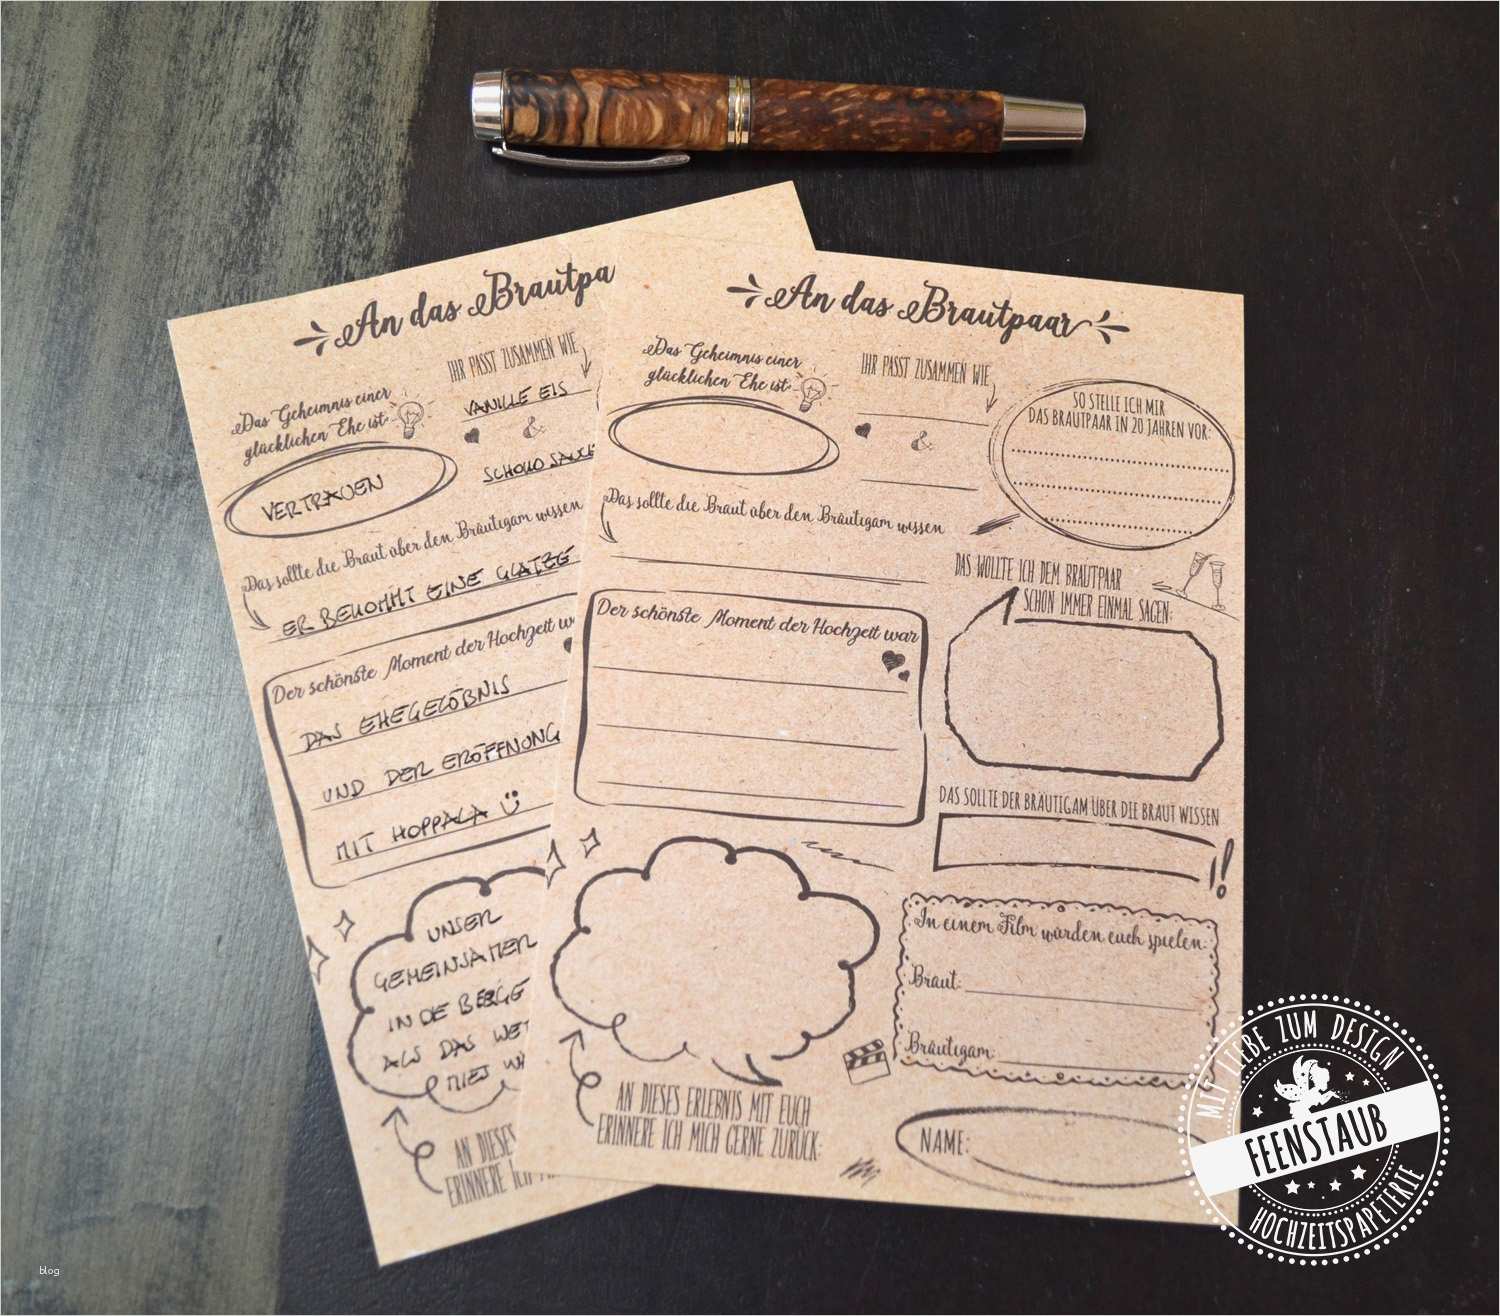 An das Brautpa
Das Geheimnis einer
glücklichen Ehe ist
VERTRAUEN
IHR PASST ZUSAMMEN WIE
VANILLE EIS
&
SCHOKO SAUCE
Das sollte die Braut über den Bräutigam wissen
ER BEKOMMT EINE GLATZE
Der schönste Moment der Hochzeit w
DAS EHEGELÖBNIS
UND DER ERÖFFNUNG
MIT HOPPALA
UNSER
GEMEINSAMER
IN DIE BERGE
ALS DAS WET
AN DIESES
ERINNERE ICH
An das Brautpaar
Das Geheimnis einer
glücklichen Ehe ist
IHR PASST ZUSAMMEN WIE
&
SO STELLE ICH MIR
DAS BRAUTPAAR IN 20 JAHREN VOR:
Das sollte die Braut über den Bräutigam wissen
DAS WOLLTE ICH DEM BRAUTPAAR
SCHON IMMER EINMAL SAGEN:
Der schönste Moment der Hochzeit war
DAS SOLLTE DER BRÄUTIGAM ÜBER DIE BRAUT WISSEN
!
In einem Film würden euch spielen:
Braut:
Bräutigam:
AN DIESES ERLEBNIS MIT EUCH
ERINNERE ICH MICH GERNE ZURÜCK:
NAME:
MIT LIEBE ZUM DESIGN
FEENSTAUB
HOCHZEITSPAPETERIE
blog